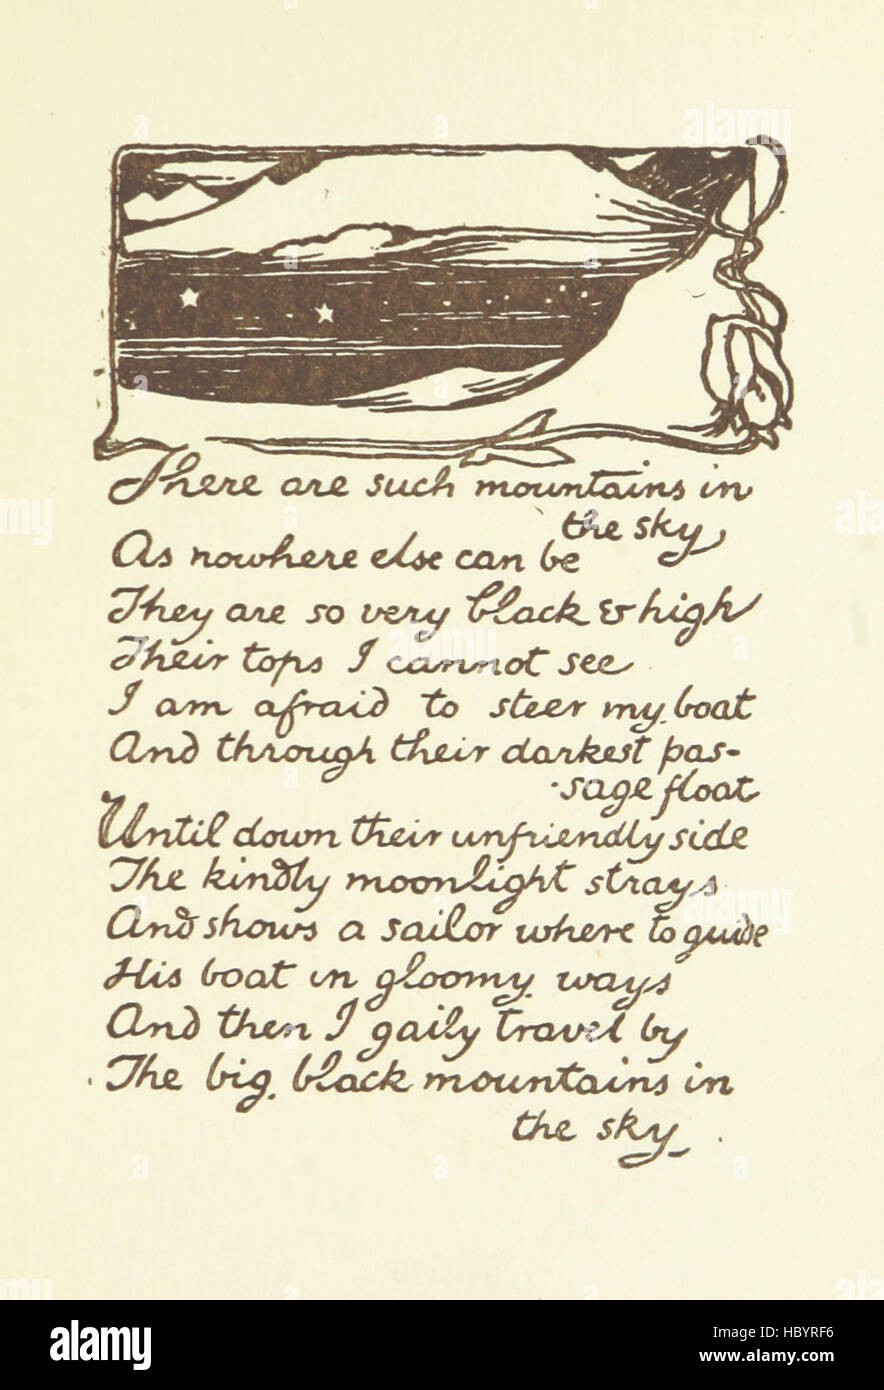 There are such mountains in
the sky,
As nowhere else can be
They are so very black & high
Their tops I cannot see
I am afraid to steer my boat
And through their darkest pas-
-sage float
Until down their unfriendly side
The kindly moonlight strays
And shows a sailor where to guide
His boat in gloomy ways
And then I gaily travel by
The big, black mountains in
the sky.
alamy
Image ID: HBYRF6
www.alamy.com